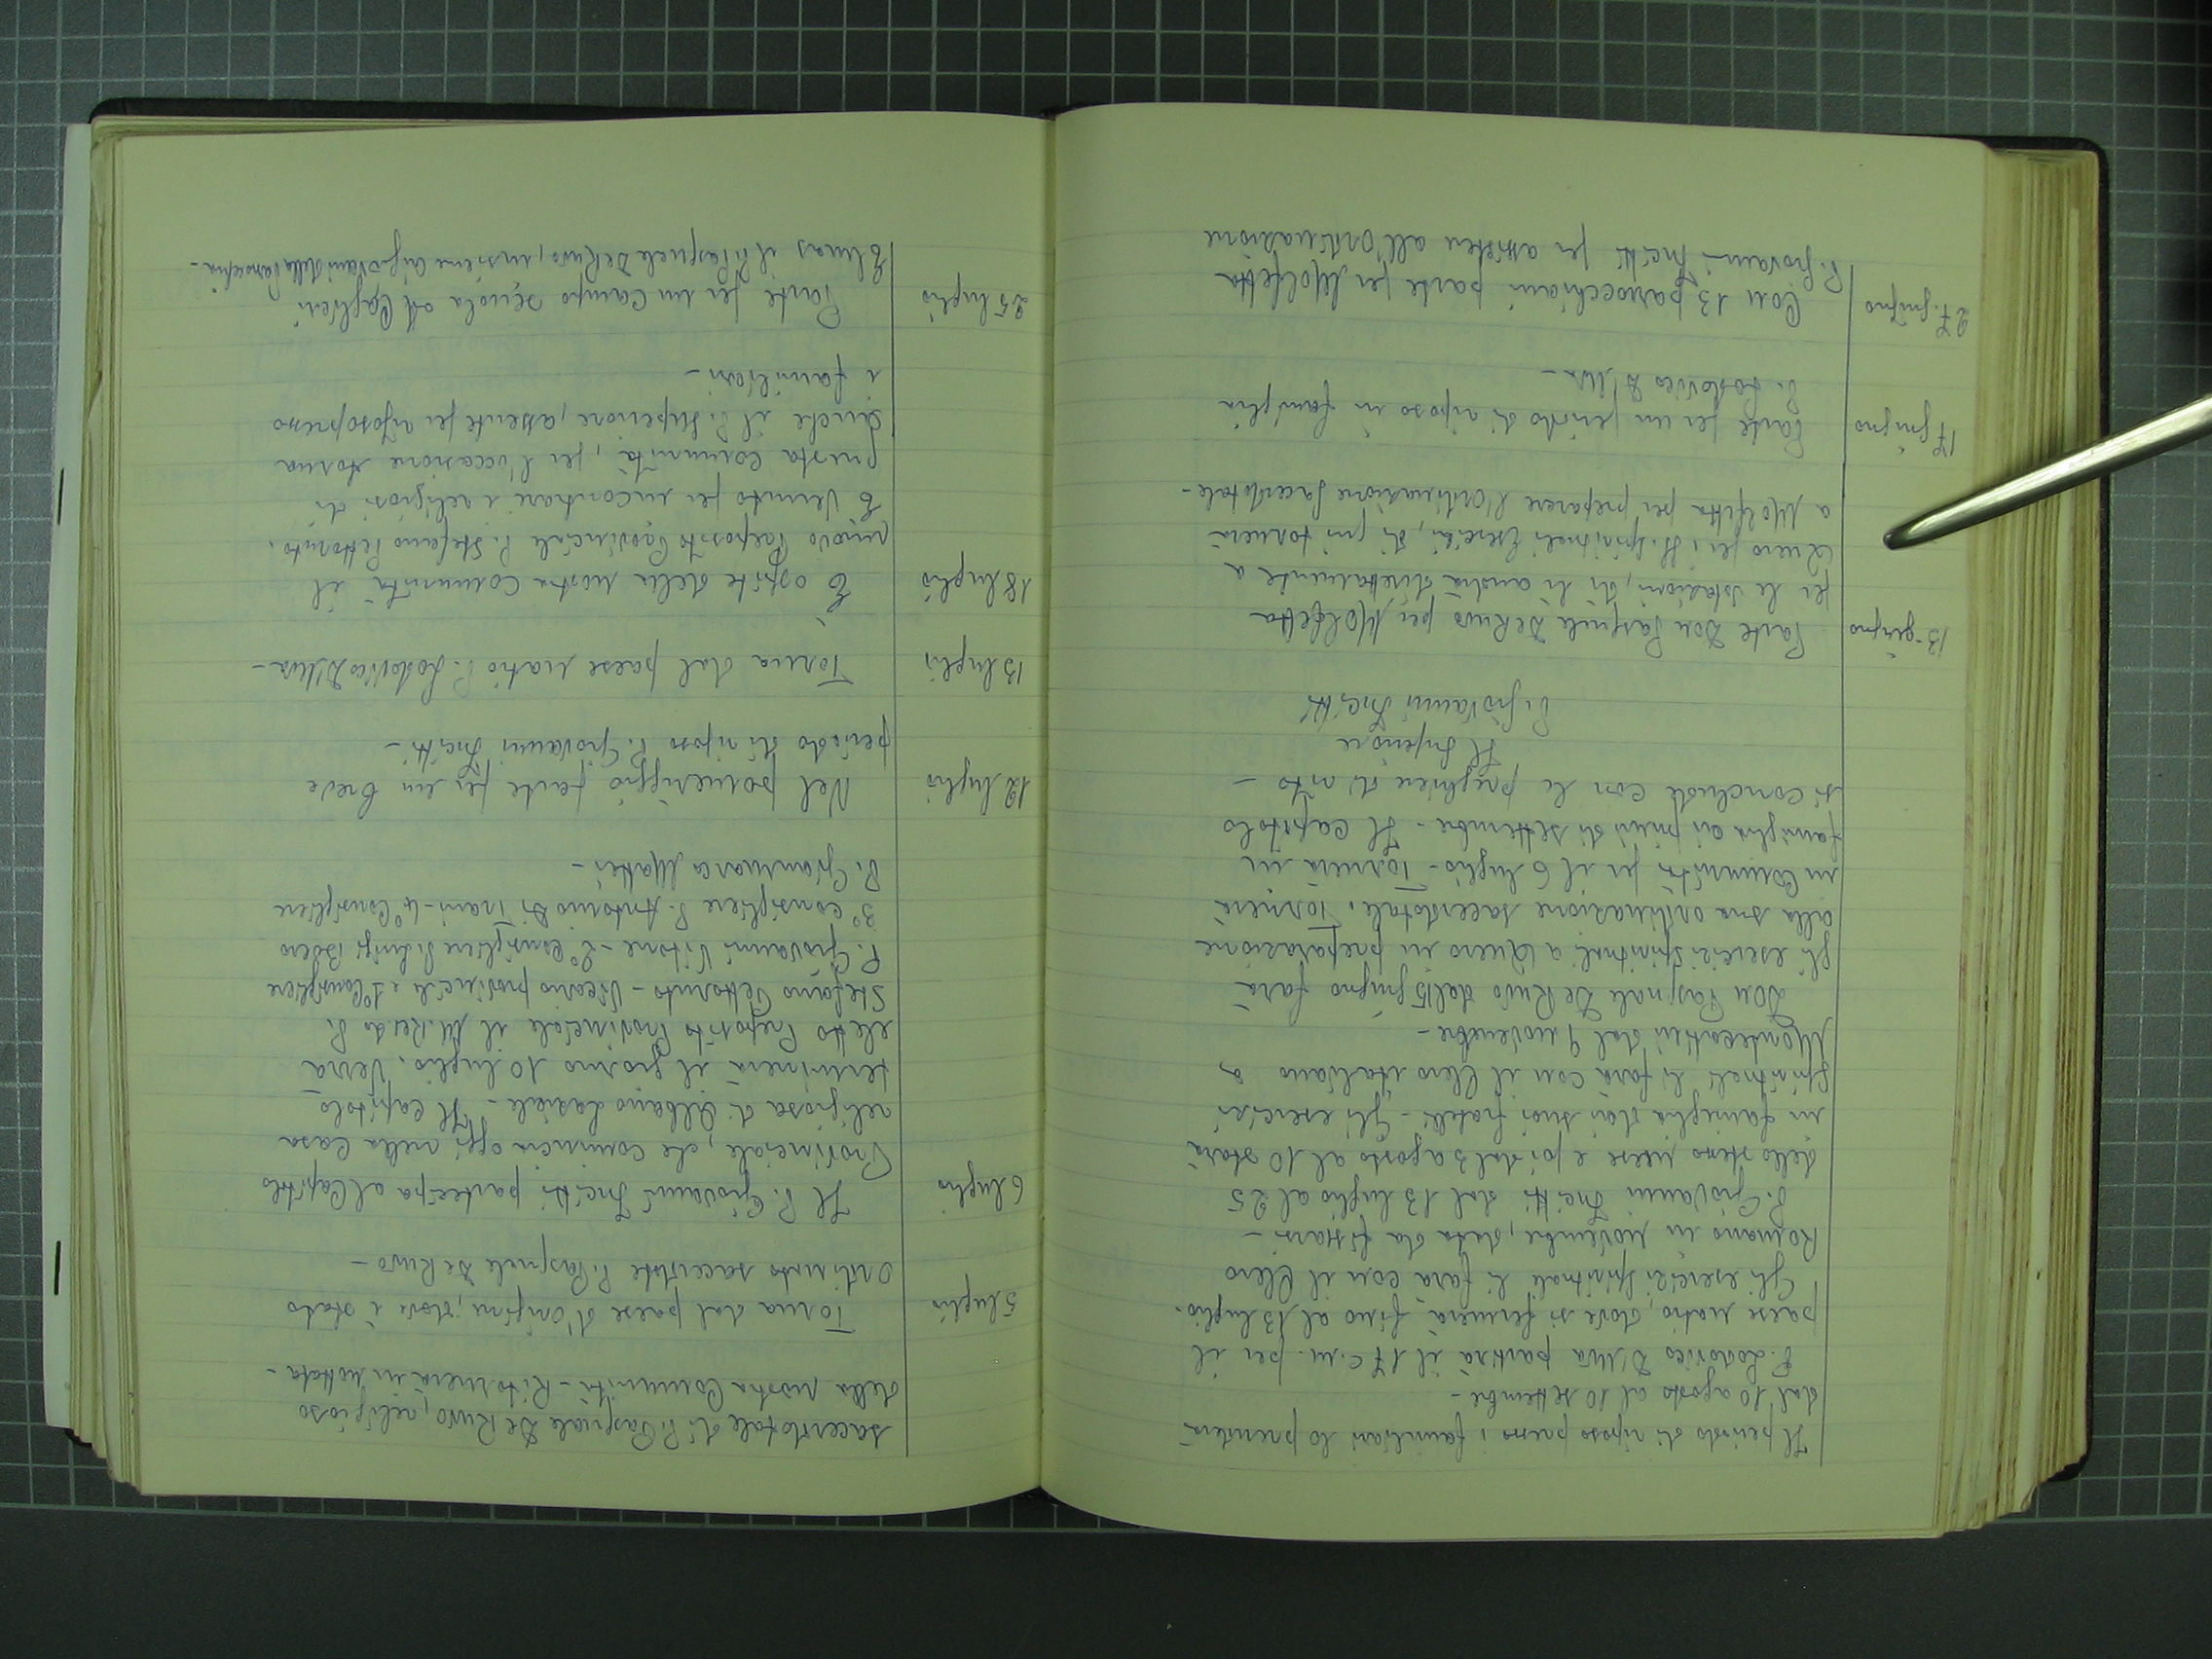 Il periodo di riposo presso i familiari lo prenderà
dal 10 agosto al 10 settembre -
P. Lodovico D'Uva partirà il 17 c.m. per il
paese natio, dove si fermerà fino al 13 luglio.
Gli esercizi spirituali li farà con il Clero
Romano in Novembre, data da fissarsi -
P. Giovanni dal 13 luglio al 25
dello stesso mese e poi dal 3 agosto al 10 starà
in famiglia dai suoi fratelli - Gli esercizi
spirituali li farà con il Clero italiano a
Montecatini dal 9 novembre -
Don Pasquale De Ruvo dal 15 giugno farà
gli esercizi spirituali a Quero in preparazione
alla sua ordinazione sacerdotale. Tornerà
in Comunità per il 6 luglio - Tornerà in
famiglia ai primi di settembre - Il Capitolo
si conclude con le preghiere di rito -
Il Superiore
P. Giovanni
13 - giugno
Parte Don Pasquale De Ruvo per Molfetta
per le di lì andrà direttamente a
Quero per i SS. Spirituali Esercizi, di qui tornerà
a Molfetta per preparare l'Ordinazione Sacerdotale -
17 giugno
Parte per un periodo di riposo in famiglia
P. Lodovico D'Uva -
27. giugno
Con 13 parrocchiani parte per Molfetta
P. Giovanni per assistere all'Ordinazione
sacerdotale di P. Pasquale De Ruvo, religioso
della nostra Comunità - Ritornerà in nottata -
5 luglio
Torna dal paese d'origini, dove è stato
Ordinato sacerdote P. Pasquale De Ruvo -
6 luglio
Il P. Giovanni partecipa al Capitolo
Provinciale, che comincia oggi nella Casa
religiosa di Albano Laziale - Il Capitolo
terminerà il giorno 10 luglio. Verrà
eletto Preposito Provinciale il M. Rev.do P.
Stefano Pettoruto - Vicario provinciale e 1° Consigliere
P. Giovanni Vitone - 2° Consigliere P. Luigi
3° Consigliere P. Antonio Di Trani - 4° Consigliere
P. Gianmarco Mattei -
12 luglio
Nel pomeriggio parte per un breve
periodo di riposo P. Giovanni
13 luglio
Torna dal paese natio P. Lodovico D'Uva -
18 luglio
È ospite della nostra Comunità il
nuovo Preposito Provinciale P. Stefano Pettoruto.
È venuto per incontrare i religiosi di
questa comunità, per l'occasione torna
anche il P. Superiore, assente per riposo presso
i familiari -
25 luglio
Parte per un Campo scuola a Cagliari
Elmas il P. Pasquale De Ruvo, insieme ai giovani della Parrocchia -